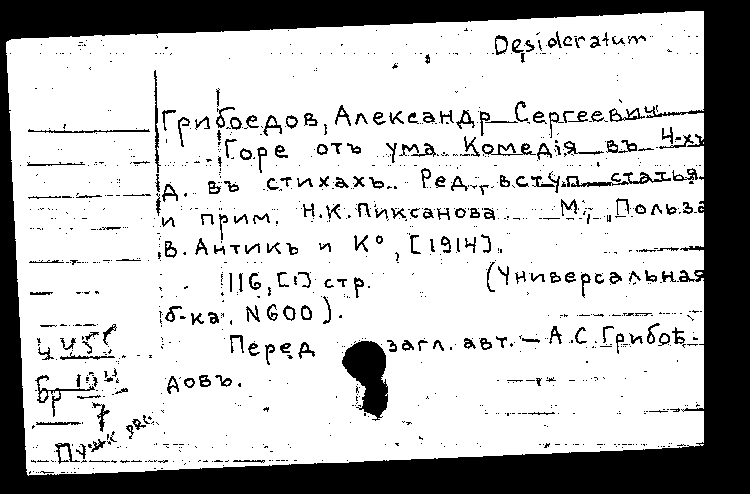 Desideratum
Грибоедов, Александр Сергеевич
Горе отъ ума. Комедія въ 4-хъ
д. въ стихахъ. Ред., вступ. статья
и прим. Н.К.Пиксанова М., „Польза
В.Антикъ и К°, [1914].
116, [1] стр. (Универсальная
б-ка. N600).
Перед загл. авт. — А.С.Грибоѣ-
довъ.
4455
Бр 104
7